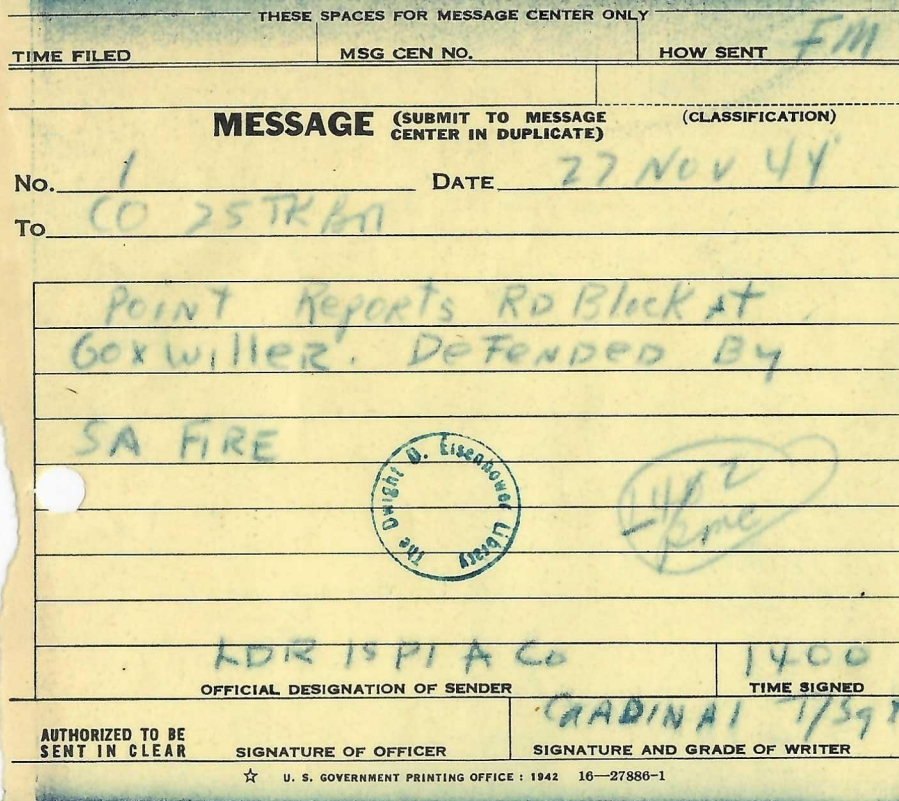 THESE SPACES FOR MESSAGE CENTER ONLY
TIME FILED MSG CEN NO. HOW SENT FM
MESSAGE (SUBMIT TO MESSAGE CENTER IN DUPLICATE) (CLASSIFICATION)
No. 1 DATE 27 NOV 44
To CO 25 TK Bn
POINT Reports RD Block At
GoxwilleR. DeFenDeD By
SA FIRE
The Dwight D. Eisenhower Library
1402
LDR 1s Pl A Co 1400
OFFICIAL DESIGNATION OF SENDER TIME SIGNED
T/Sgt
AUTHORIZED TO BE SENT IN CLEAR SIGNATURE OF OFFICER SIGNATURE AND GRADE OF WRITER
☆ U. S. GOVERNMENT PRINTING OFFICE : 1942 16—27886-1